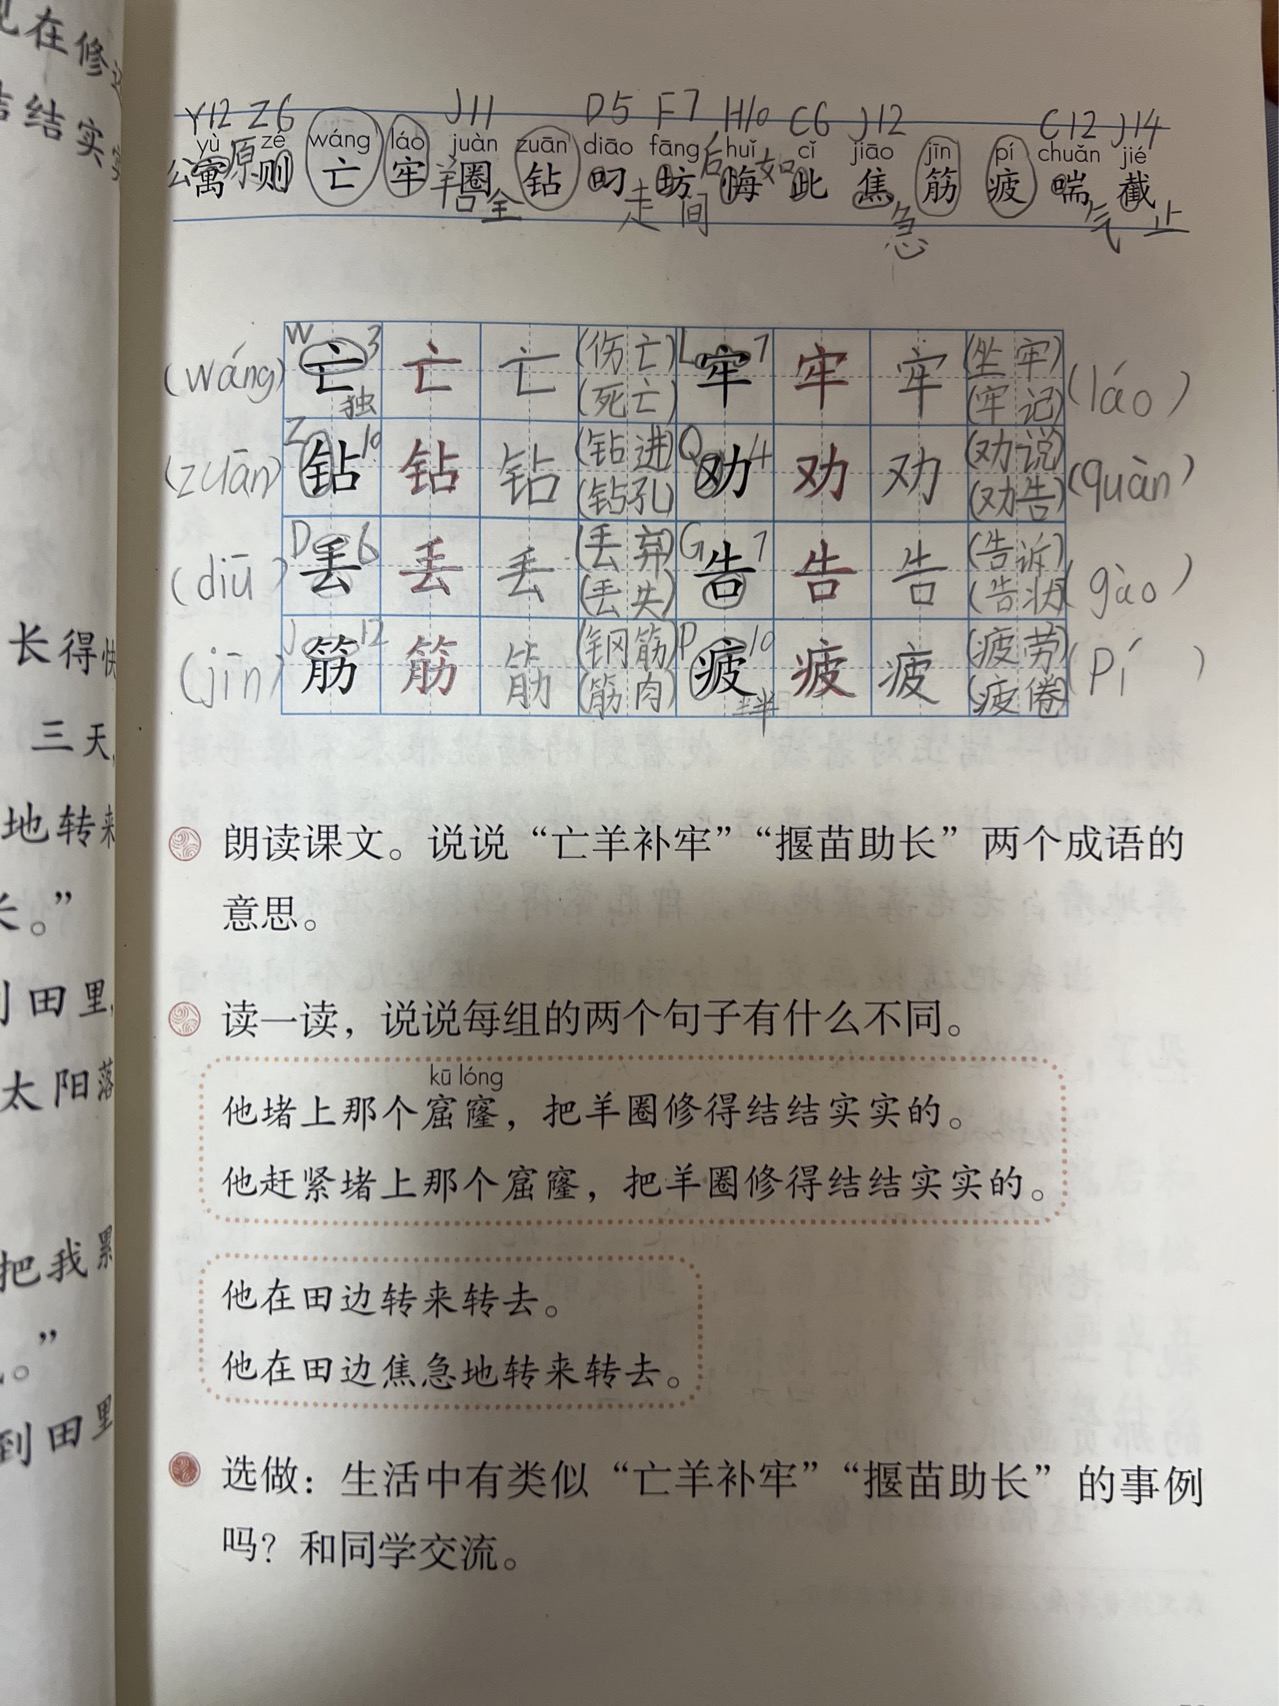 现在修
结结实实
长得快
三天，
地转来
长。”
到田里，
太阳落
把我累
。”
到田里
Y12 Z6 J11 D5 F7 H10 C6 J12 C12 J14
yù zé wáng láo juàn zuān diāo fāng huǐ cǐ jiāo jīn pí chuǎn jié
公寓 原则 亡 牢 羊圈 钻 叼 坊 后悔 如此 焦 筋 疲 喘 截
走 间 急 气 止
(wáng) W 亡 3 亡 亡 (伤亡) L 牢 7 牢 牢 (坐牢) (láo)
独 (死亡) (牢记)
(zuān) Z 钻 10 钻 钻 (钻进) Q 劝 4 劝 劝 (劝说) (quàn)
(钻孔) (劝告)
(diū) D 丢 6 丢 丢 (丢弃) G 告 7 告 告 (告诉) (gào)
(丢失) (告状)
(jīn) J 筋 12 筋 筋 (钢筋) P 疲 10 疲 疲 (疲劳) (pí)
(筋肉) 半 (疲倦)
朗读课文。说说“亡羊补牢”“揠苗助长”两个成语的
意思。
读一读，说说每组的两个句子有什么不同。
kū lóng
他堵上那个窟窿，把羊圈修得结结实实的。
他赶紧堵上那个窟窿，把羊圈修得结结实实的。
他在田边转来转去。
他在田边焦急地转来转去。
选做：生活中有类似“亡羊补牢”“揠苗助长”的事例
吗？和同学交流。